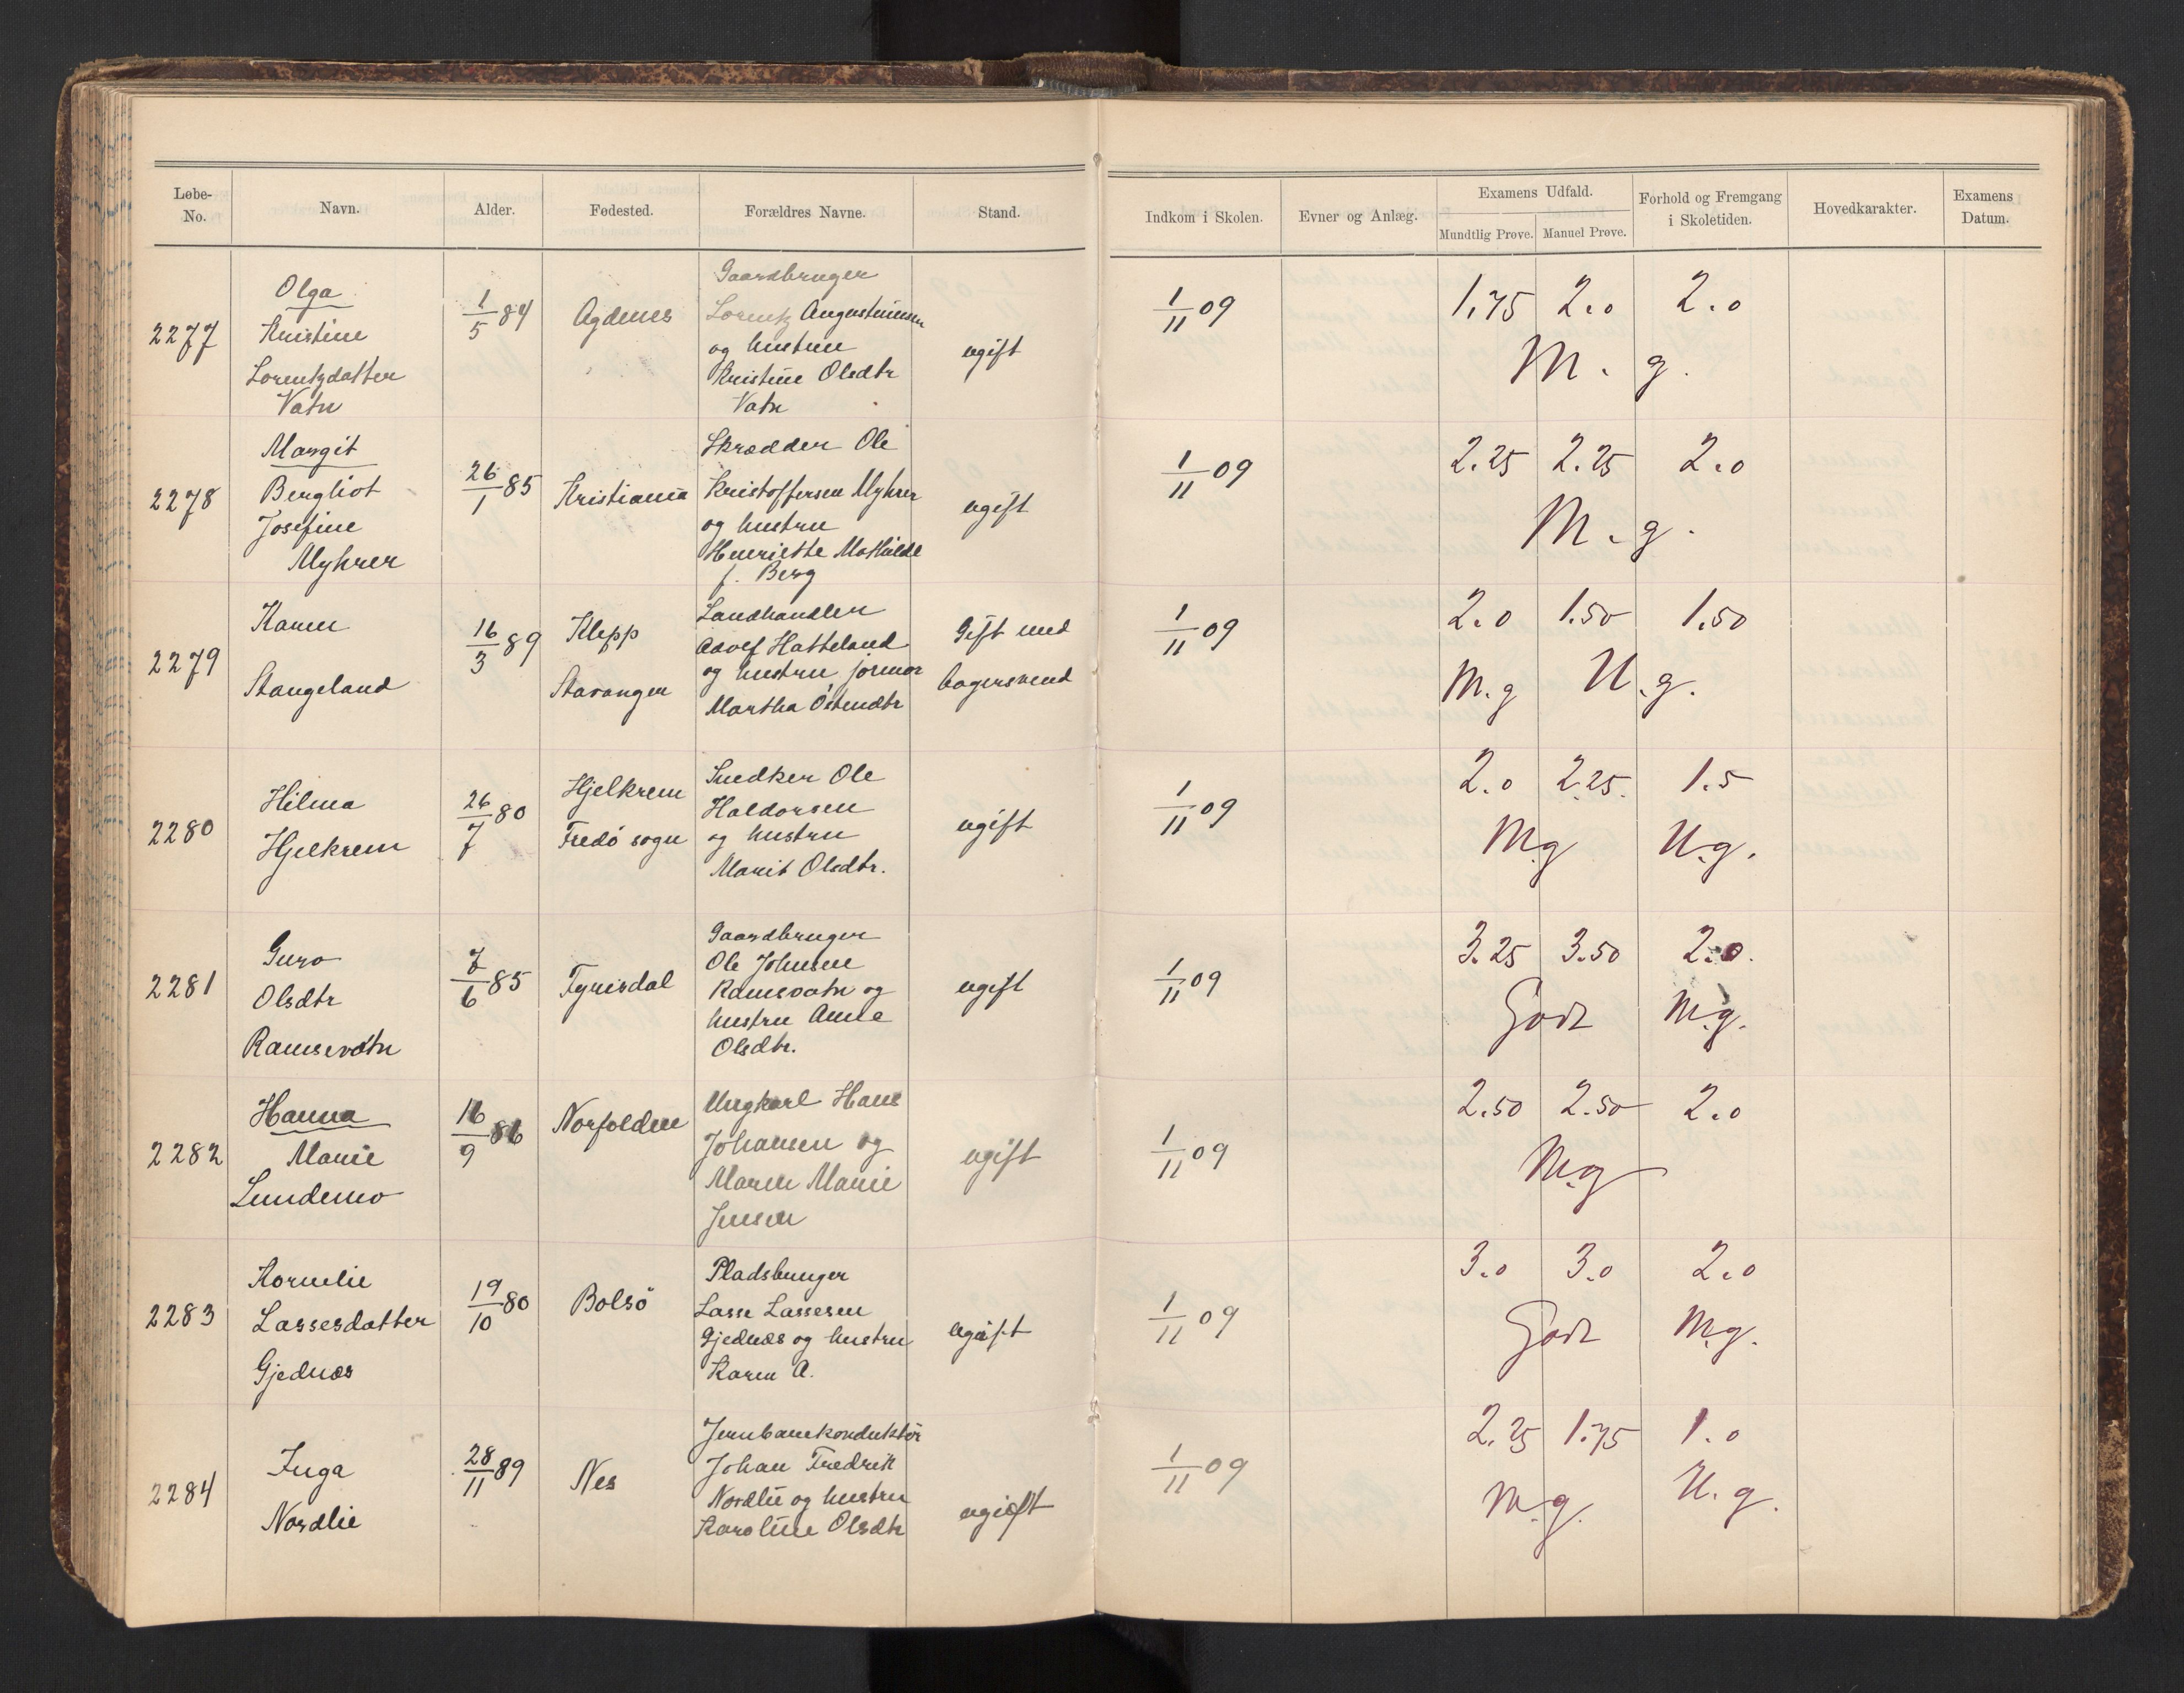 Løbe-
No.
Navn.
Alder.
Fødested.
Forældres Navne.
Stand.
Indkom i Skolen.
Evner og Anlæg.
Examens Udfald.
Mundtlig Prøve.
Manuel Prøve.
Forhold og Fremgang
i Skoletiden.
Hovedkarakter.
Examens
Datum.
2277
Olga
Kristine
Lorentzdatter
Vatn
1/5 84
Agdenes
Gaardbruger
Lorentz Augustinusen
og hustru
Kristine Olsdtr
Vatn
ugift
1/11 09
1.75 2.0 2.0
M. g.
2278
Margit
Bergliot
Josefine
Myhrer
26/1 85
Kristiania
Skrædder Ole
Kristoffersen Myhrer
og hustru
Henriette Mathilde
f. Berg
ugift
1/11 09
2.25 2.25 2.0
M. g.
2279
Karen
Stangeland
16/3 89
Klepp
Stavanger
Landhandler
Adolf Hatteland
og hustru jormor
Martha Östendtr
Gift med
bagersvend
1/11 09
2.0 1.50 1.50
M.g U.g.
2280
Hilma
Hjelkrem
26/7 80
Hjelkrem
Fredö sogn
Snedker Ole
Haldorsen
og hustru
Marit Olsdtr.
ugift
1/11 09
2.0 2.25. 1.5
M.g U.g.
2281
Guro
Olsdtr
Ramsevatn
7/6 85
Fyrisdal
Gaardbruger
Ole Johnsen
Ramsvatn og
hustru Anne
Olsdtr.
ugift
1/11 09
3.25 3.50 2.0.
Godt M.g.
2282
Hanna
Marie
Lundemo
16/9 86
Norfolden
Ungkarl Hans
Johansen og
Maren Marie
Jensen
ugift
1/11 09
2.50 2.50 2.0
M.g
2283
Kornelie
Lassesdatter
Gjednæs
19/10 80
Bolsö
Pladsbruger
Lasse Lassesen
Gjednæs og hustru
Karen A.
ugift
1/11 09
3.0 3.0 2.0
Godt M.g.
2284
Inga
Nordlie
28/11 89
Nes
Jernbanekonduktör
Johan Fredrik
Nordlie og hustru
Karoline Olsdtr
ugift
1/11 09
2.25 1.75 1.0
M.g. U.g.